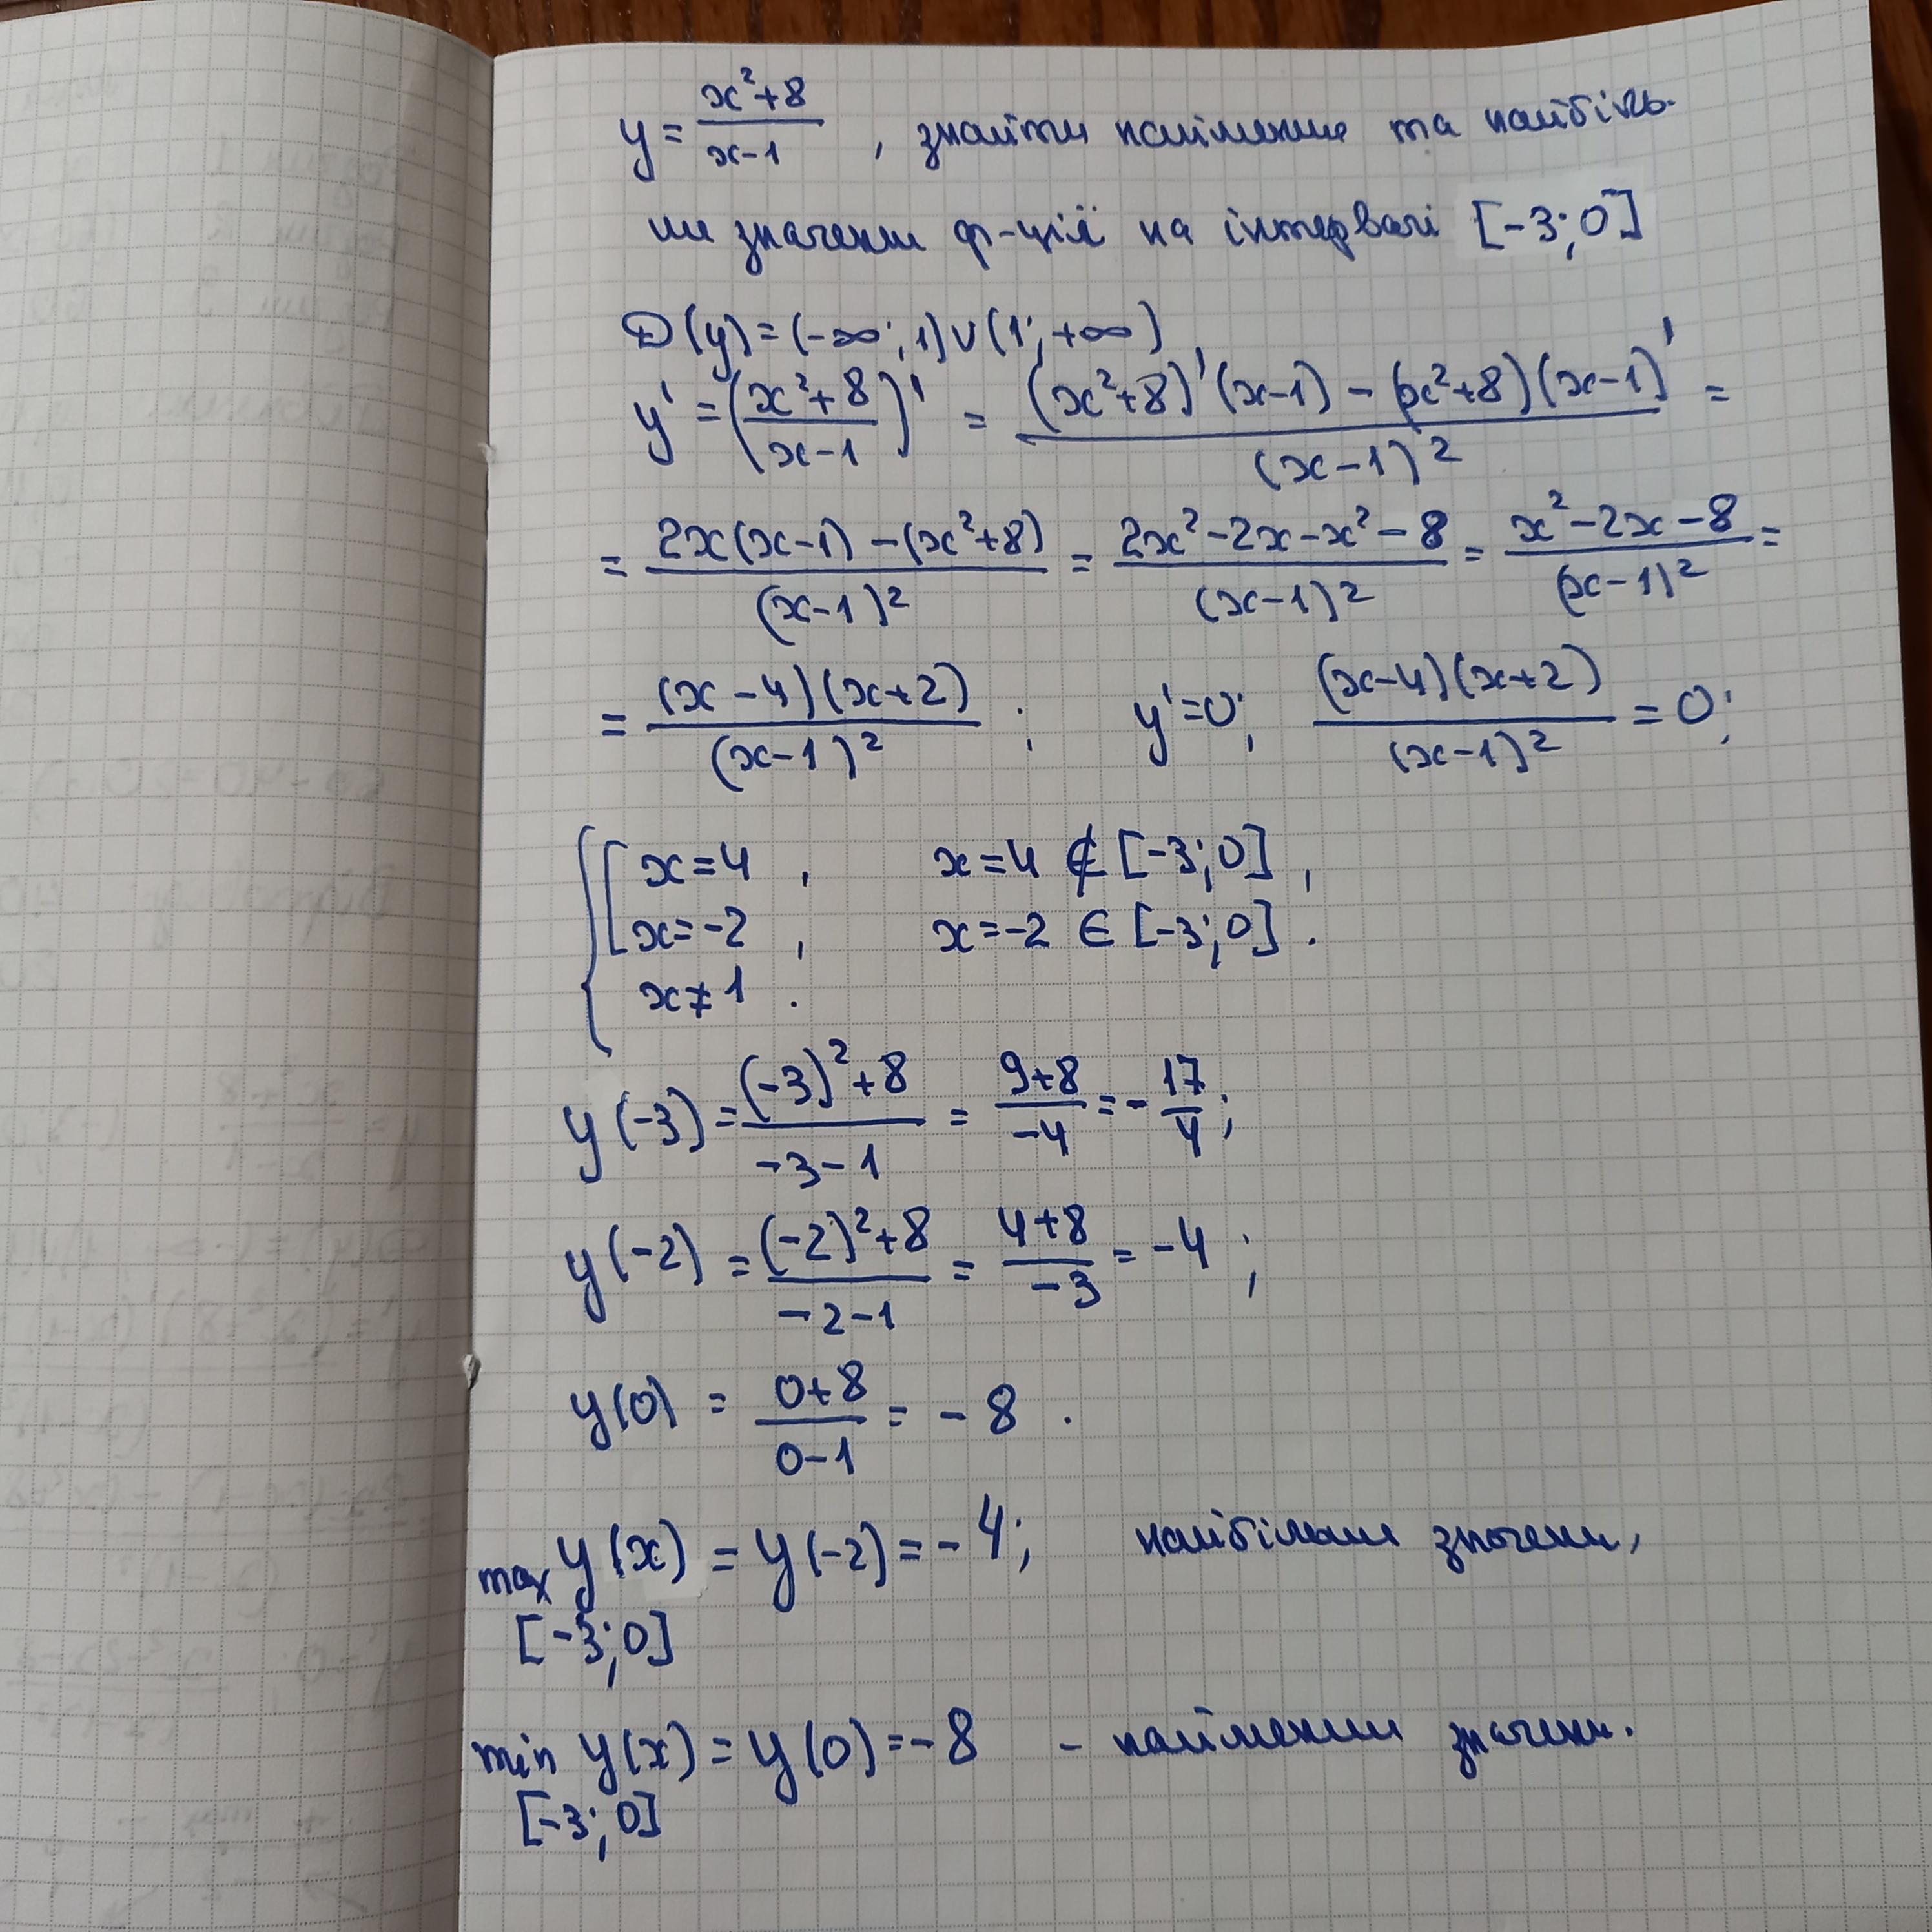 y = (x²+8)/(x-1), знайти найменше та найбіль-
ше значення ф-ції на інтервалі [-3;0]
D(y)=(-∞;1)∪(1;+∞)
y' = ((x²+8)/(x-1))' = ((x²+8)'(x-1) - (x²+8)(x-1)')/(x-1)² =
= (2x(x-1) - (x²+8))/(x-1)² = (2x²-2x-x²-8)/(x-1)² = (x²-2x-8)/(x-1)² =
= ((x-4)(x+2))/(x-1)²; y'=0; ((x-4)(x+2))/(x-1)² = 0;
{ [ x=4, x=4 ∉ [-3;0],
x=-2, x=-2 ∈ [-3;0].
x≠1.
y(-3) = ((-3)²+8)/(-3-1) = (9+8)/(-4) = -17/4;
y(-2) = ((-2)²+8)/(-2-1) = (4+8)/(-3) = -4;
y(0) = (0+8)/(0-1) = -8.
max y(x) = y(-2) = -4; найбільше значення,
[-3;0]
min y(x) = y(0) = -8 - найменше значення.
[-3;0]